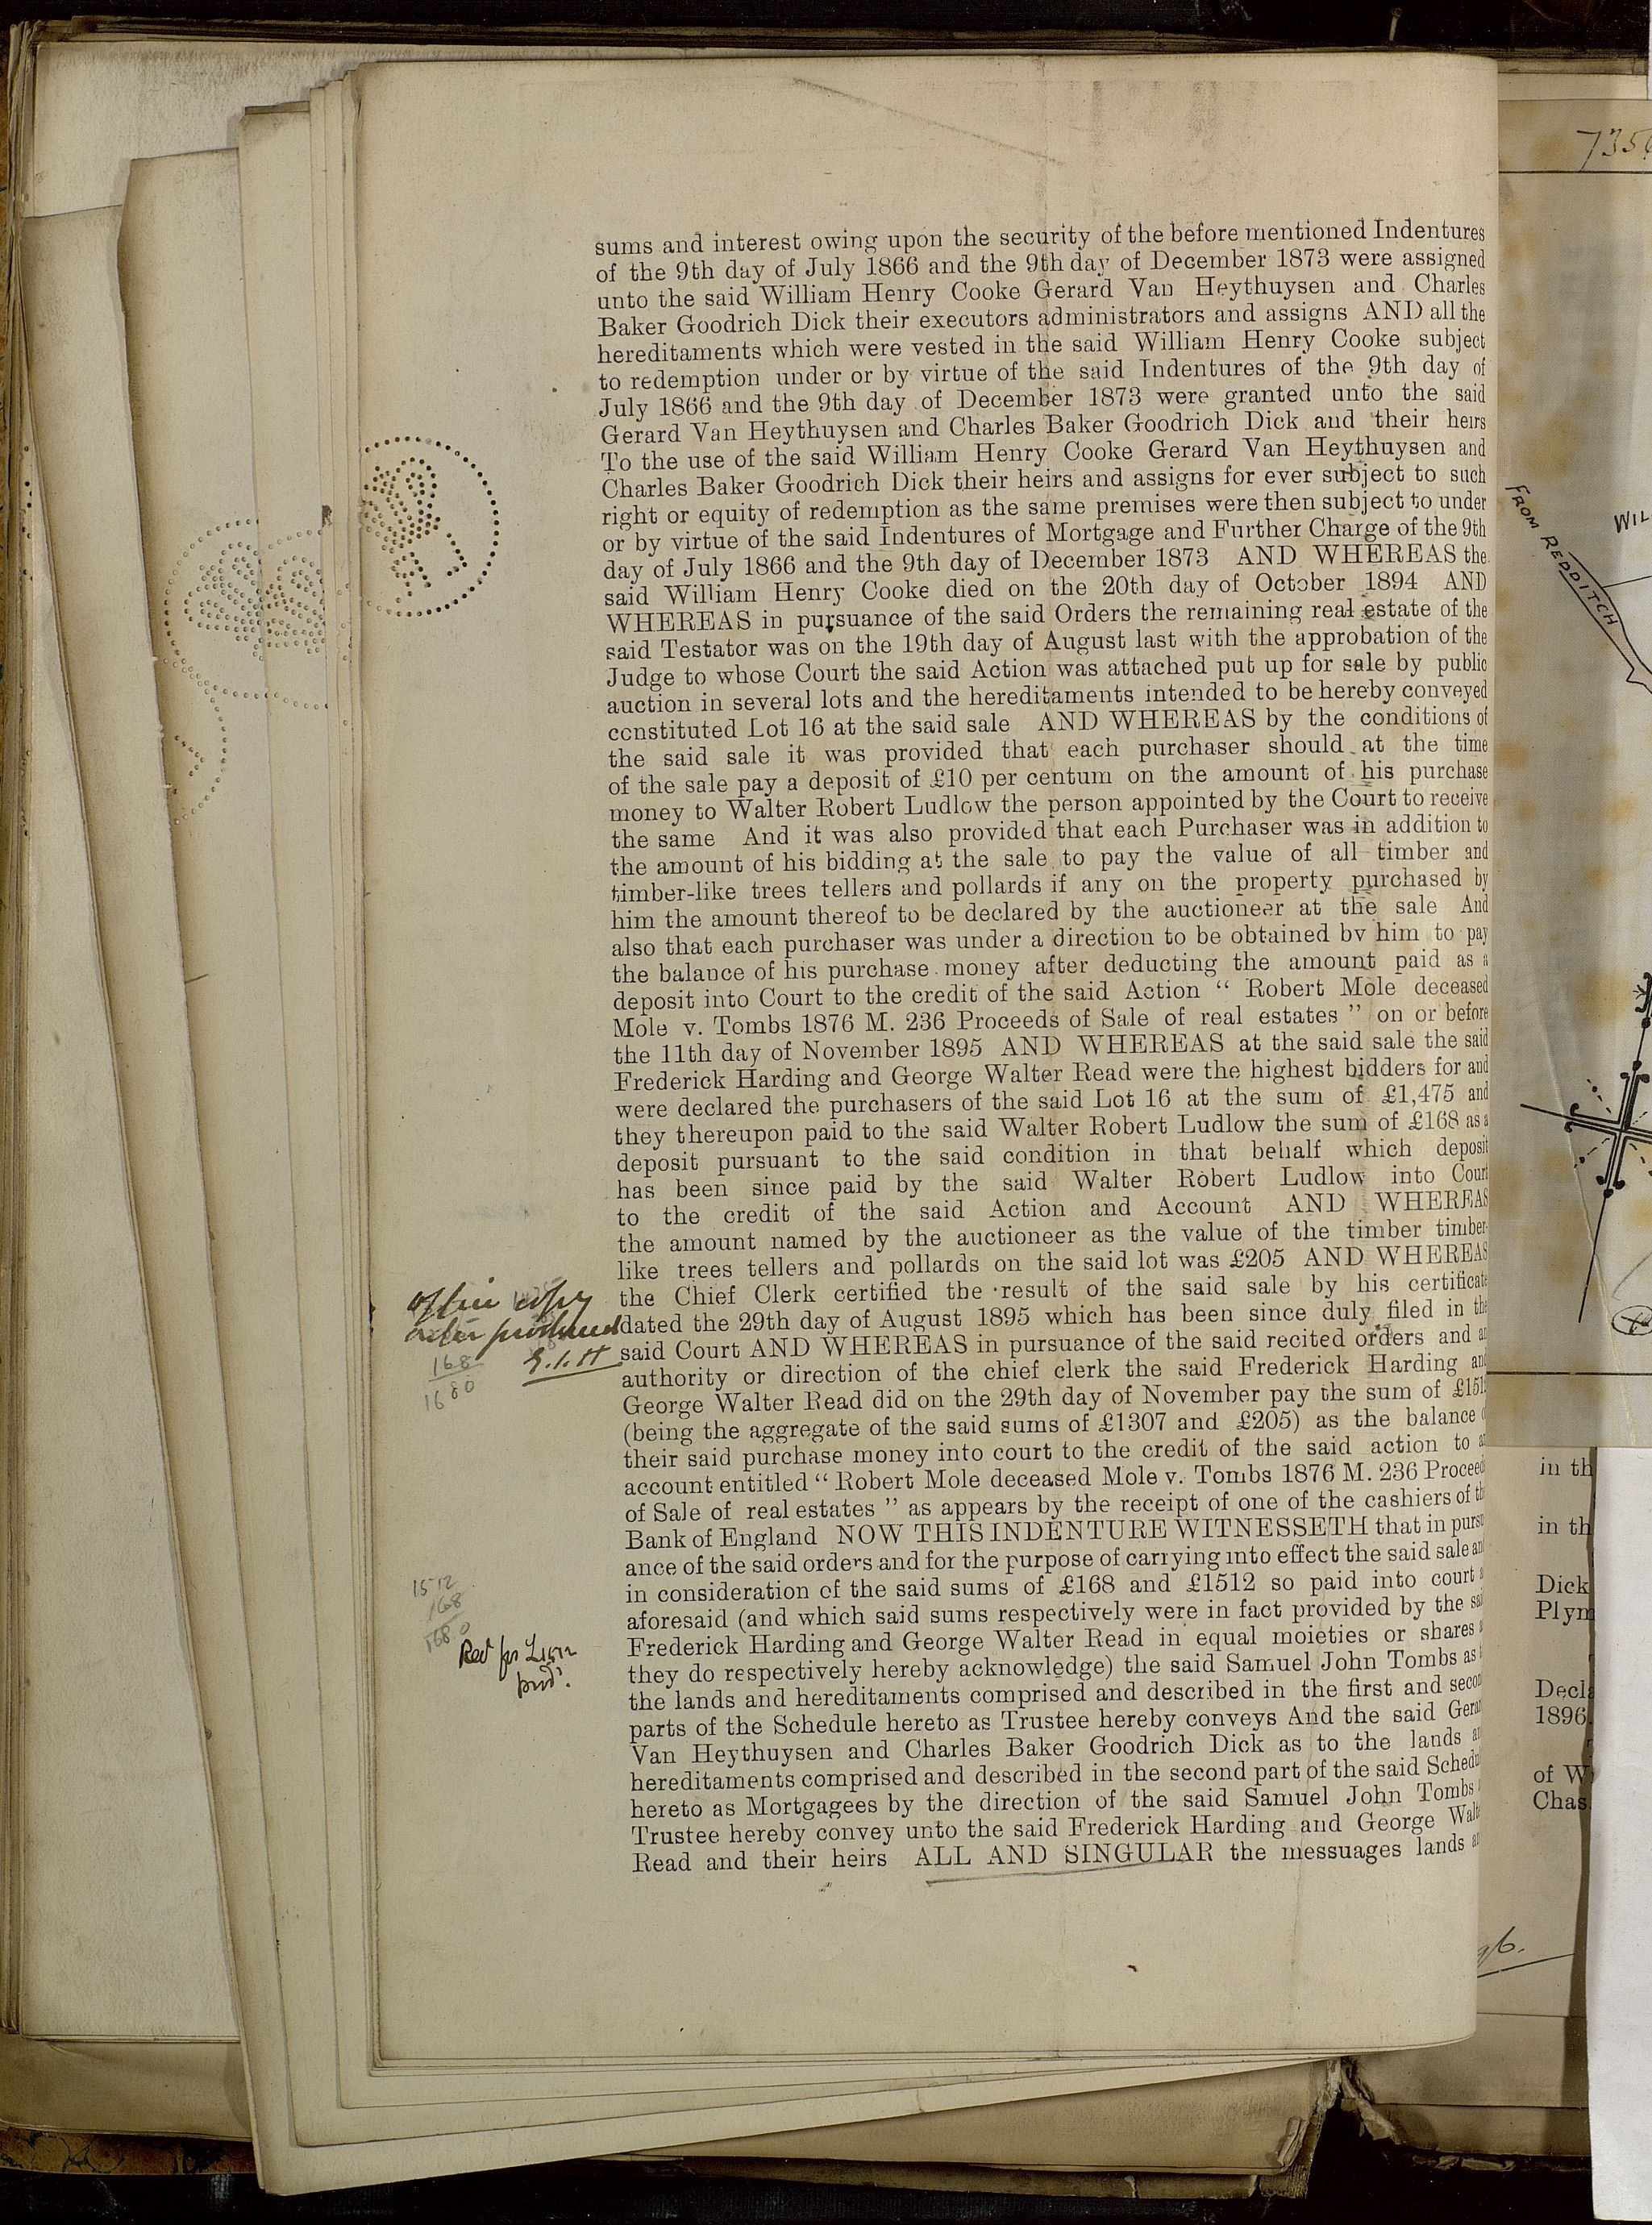 sums and interest owing upon the security of the before mentioned Indentures
of the 9th day of July 1866 and the 9th day of December 1873 were assigned
unto the said William Henry Cooke Gerard Van Heythuysen and Charles
Baker Goodrich Dick their executors administrators and assigns AND all the
hereditaments which were vested in the said William Henry Cooke subject
to redemption under or by virtue of the said Indentures of the 9th day of
July 1866 and the 9th day of December 1873 were granted unto the said
Gerard Van Heythuysen and Charles Baker Goodrich Dick and their heirs
To the use of the said William Henry Cooke Gerard Van Heythuysen and
Charles Baker Goodrich Dick their heirs and assigns for ever subject to such
right or equity of redemption as the same premises were then subject to under
or by virtue of the said Indentures of Mortgage and Further Charge of the 9th
day of July 1866 and the 9th day of December 1873 AND WHEREAS the
said William Henry Cooke died on the 20th day of October 1894 AND
WHEREAS in pursuance of the said Orders the remaining real estate of the
said Testator was on the 19th day of August last with the approbation of the
Judge to whose Court the said Action was attached put up for sale by public
auction in several lots and the hereditaments intended to be hereby conveyed
constituted Lot 16 at the said sale AND WHEREAS by the conditions of
the said sale it was provided that each purchaser should at the time
of the sale pay a deposit of £10 per centum on the amount of his purchase
money to Walter Robert Ludlow the person appointed by the Court to receive
the same And it was also provided that each Purchaser was in addition to
the amount of his bidding at the sale to pay the value of all timber and
timber-like trees tellers and pollards if any on the property purchased by
him the amount thereof to be declared by the auctioneer at the sale And
also that each purchaser was under a direction to be obtained by him to pay
the balance of his purchase money after deducting the amount paid as a
deposit into Court to the credit of the said Action " Robert Mole deceased
Mole v. Tombs 1876 M. 236 Proceeds of Sale of real estates " on or before
the 11th day of November 1895 AND WHEREAS at the said sale the said
Frederick Harding and George Walter Read were the highest bidders for and
were declared the purchasers of the said Lot 16 at the sum of £1,475 and
they thereupon paid to the said Walter Robert Ludlow the sum of £168 as a
deposit pursuant to the said condition in that behalf which deposit
has been since paid by the said Walter Robert Ludlow into Court
to the credit of the said Action and Account AND WHEREAS
the amount named by the auctioneer as the value of the timber timber-
like trees tellers and pollards on the said lot was £205 AND WHEREAS
the Chief Clerk certified the result of the said sale by his certificate
dated the 29th day of August 1895 which has been since duly filed in the
said Court AND WHEREAS in pursuance of the said recited orders and an
authority or direction of the chief clerk the said Frederick Harding and
George Walter Read did on the 29th day of November pay the sum of £1512
(being the aggregate of the said sums of £1307 and £205) as the balance
their said purchase money into court to the credit of the said action to
account entitled " Robert Mole deceased Mole v. Tombs 1876 M. 236 Proceeds
of Sale of real estates " as appears by the receipt of one of the cashiers of the
Bank of England NOW THIS INDENTURE WITNESSETH that in pursu
ance of the said orders and for the purpose of carrying into effect the said sale and
in consideration of the said sums of £168 and £1512 so paid into court
aforesaid (and which said sums respectively were in fact provided by the
Frederick Harding and George Walter Read in equal moieties or shares
they do respectively hereby acknowledge) the said Samuel John Tombs as
the lands and hereditaments comprised and described in the first and secon
parts of the Schedule hereto as Trustee hereby conveys And the said Gerar
Van Heythuysen and Charles Baker Goodrich Dick as to the lands
hereditaments comprised and described in the second part of the said Schedu
hereto as Mortgagees by the direction of the said Samuel John Tombs
Trustee hereby convey unto the said Frederick Harding and George Walt
Read and their heirs ALL AND SINGULAR the messuages lands
Office copy
order produced
G.I.H
168
1680
1512
168
1680
Rect for £1512
prod.
735
FROM REDDITCH
WIL
in th
in th
Dick
Plym
Decla
1896
of W
Chas
96.